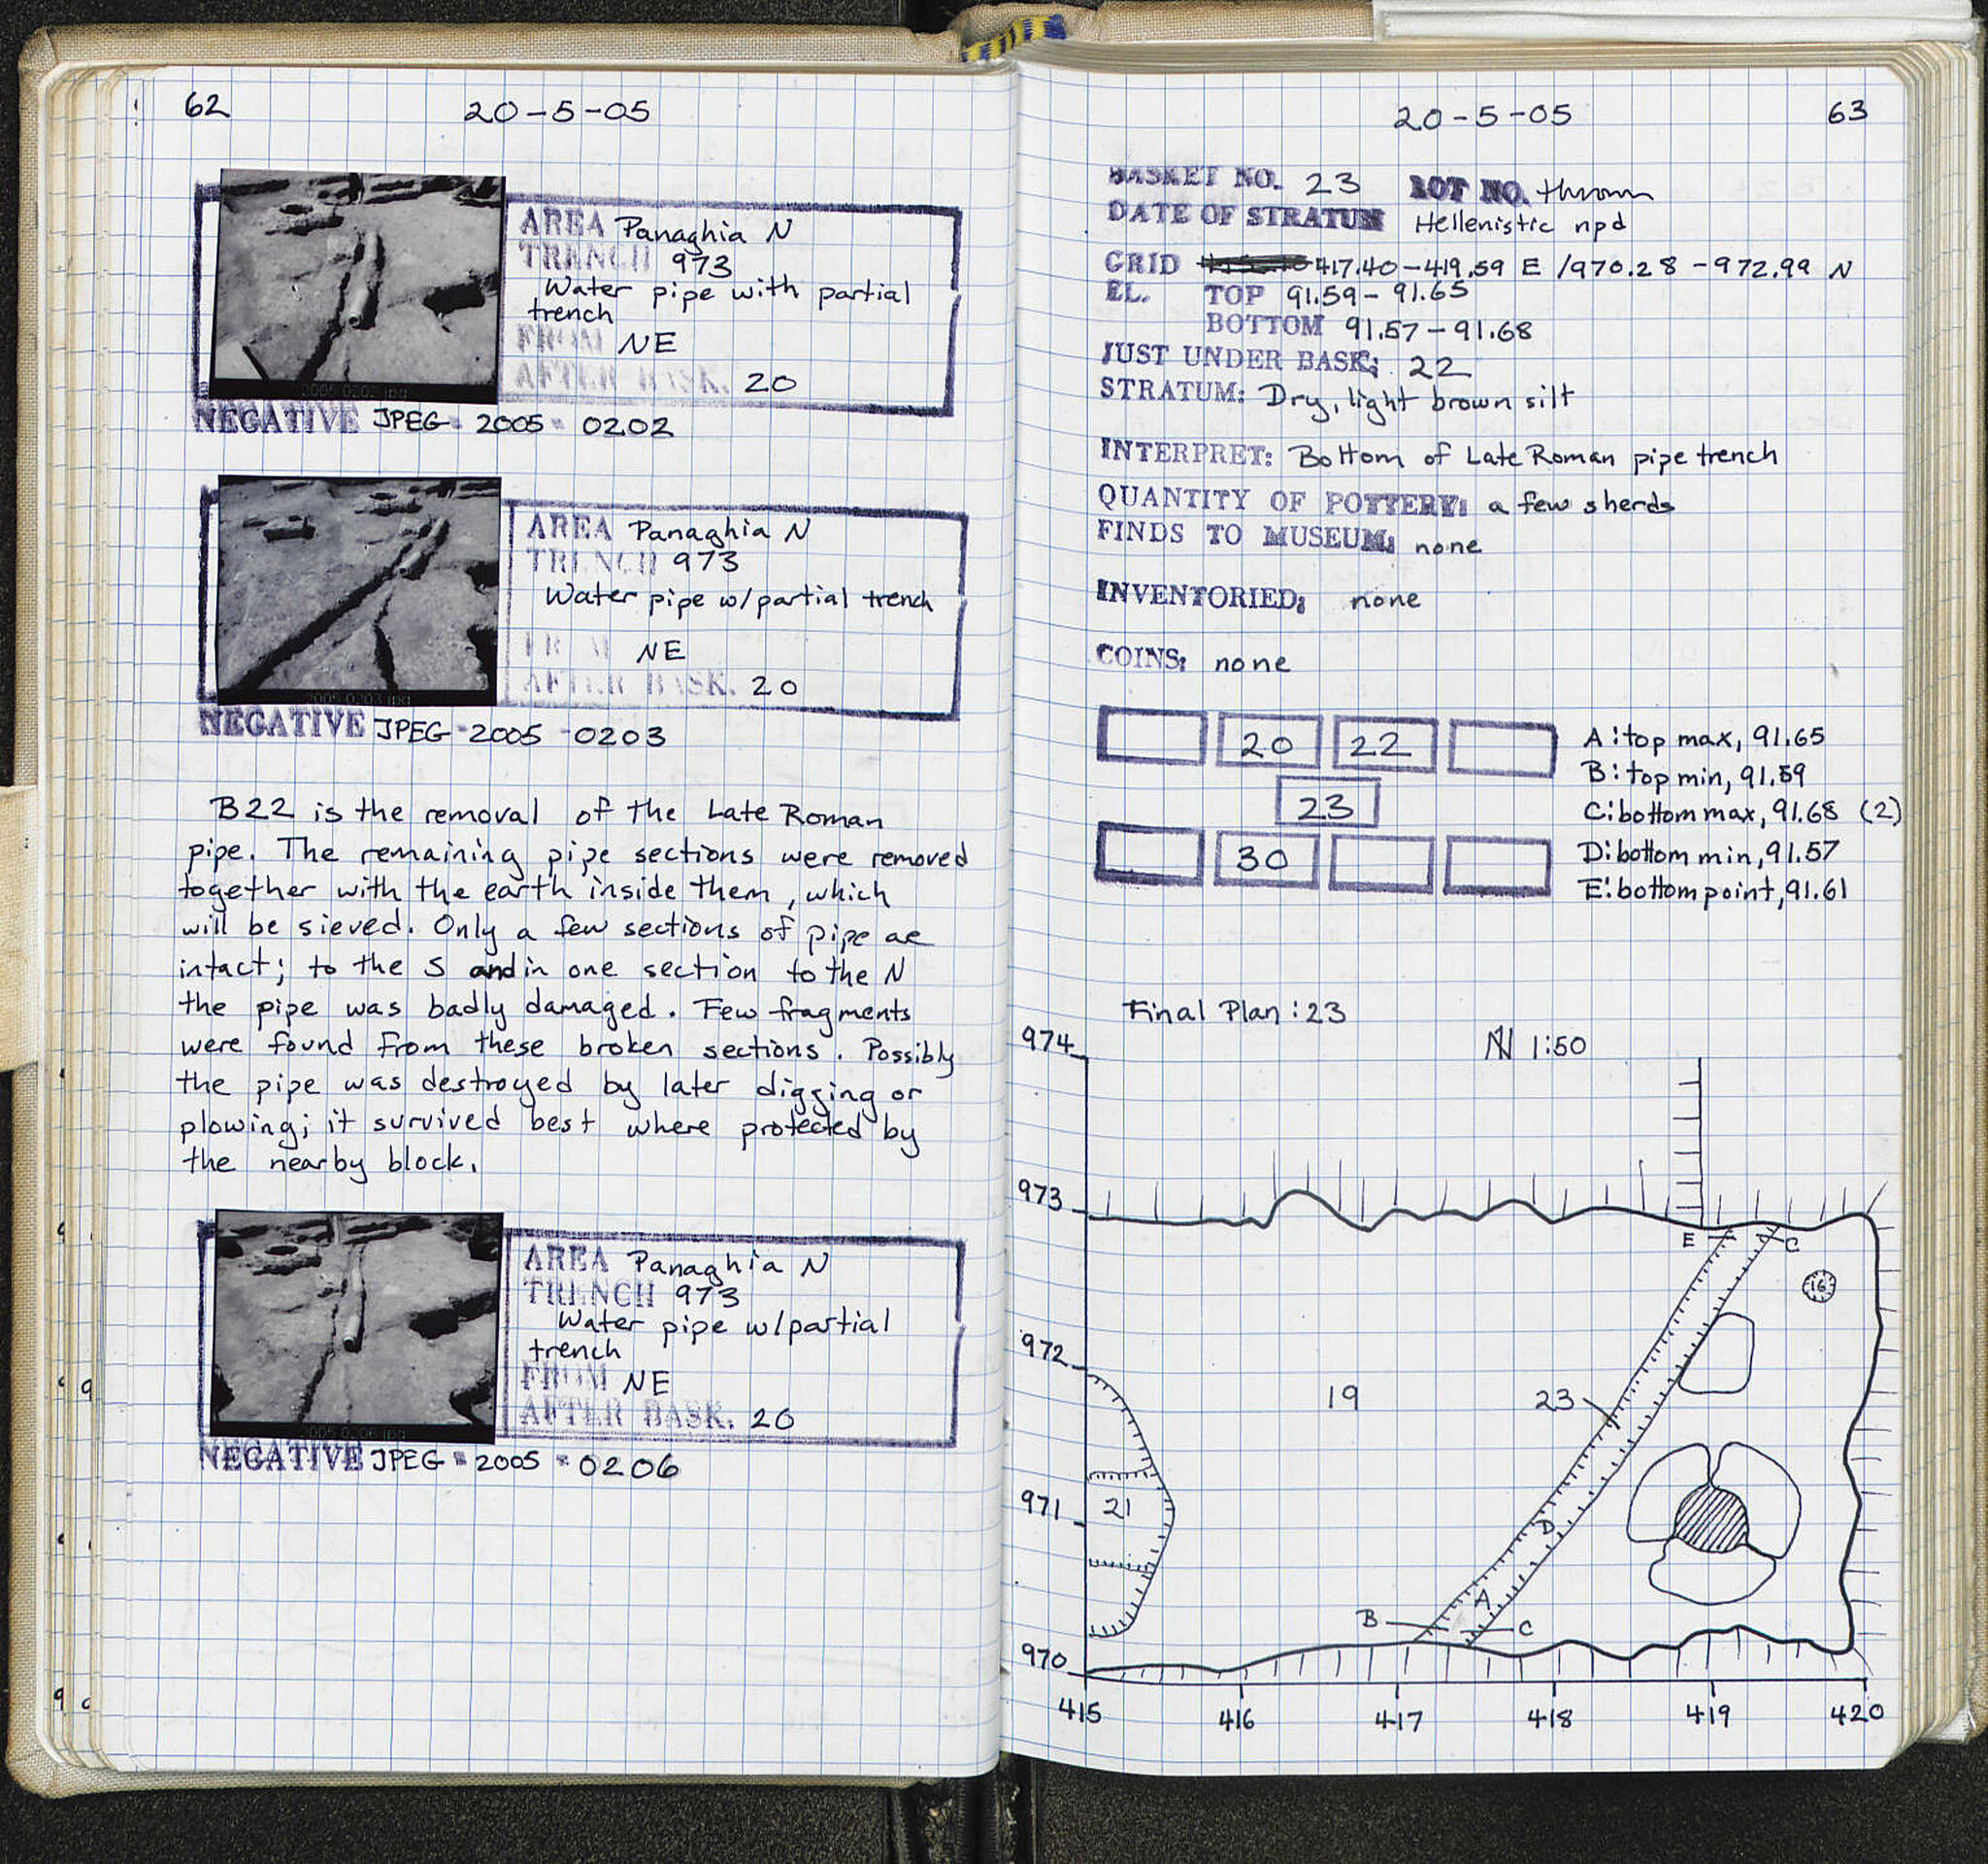 62
20-5-05
AREA Panaghia N
TRENCH 973
Water pipe with partial
trench
FROM NE
AFTER BASK. 20
2005 0202.jpg
NEGATIVE JPEG - 2005 - 0202
AREA Panaghia N
TRENCH 973
Water pipe w/partial trench
FROM NE
AFTER BASK. 20
2005 0203.jpg
NEGATIVE JPEG - 2005 - 0203
B22 is the removal of the Late Roman
pipe. The remaining pipe sections were removed
together with the earth inside them, which
will be sieved. Only a few sections of pipe ae
intact; to the S and in one section to the N
the pipe was badly damaged. Few fragments
were found from these broken sections. Possibly
the pipe was destroyed by later digging or
plowing; it survived best where protected by
the nearby block.
AREA Panaghia N
TRENCH 973
Water pipe w/partial
trench
FROM NE
AFTER BASK. 20
2005 0206.jpg
NEGATIVE JPEG - 2005 - 0206
20-5-05
63
BASKET NO. 23 LOT NO. thrown
DATE OF STRATUM Hellenistic npd
GRID 417.40-419.59 E /970.28-972.99 N
EL. TOP 91.59-91.65
BOTTOM 91.57-91.68
JUST UNDER BASK: 22
STRATUM: Dry, light brown silt
INTERPRET: Bottom of Late Roman pipe trench
QUANTITY OF POTTERY: a few sherds
FINDS TO MUSEUM: none
INVENTORIED: none
COINS: none
20 22
23
30
A: top max, 91.65
B: top min, 91.59
C: bottom max, 91.68 (2)
D: bottom min, 91.57
E: bottom point, 91.61
Final Plan: 23
N 1:50
974
973
E
C
16
972
19
23
971
21
D
A
B
C
970
415
416
417
418
419
420